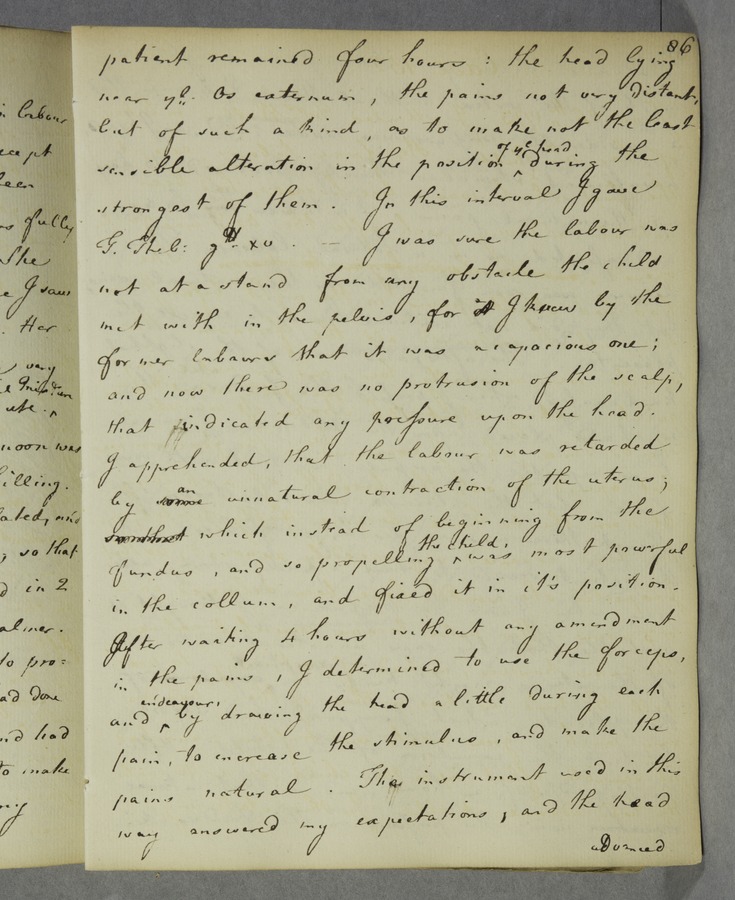 in labour
cept
been
as fully
She
e I saw
. Her
very
ute.
noon was
illing.
lated, and
; so that
d in 2
almer.
to pro=
ad done
nd had
to make
86
patient remained four hours : the head lying
near ye. Os externum, the pains not very distant,
but of such a kind, as to make not the least
sensible alteration in the position of ye head ^ during the
strongest of them. In this interval I gave
G. Theb: gtt. xv. — I was sure the labour was
not at a stand from any obstacle the child
met with in the pelvis, for it I knew by the
former labours that it was a capacious one;
and now there was no protrusion of the scalp,
that indicated any pressure upon the head.
I apprehended, that the labour was retarded
by some an unnatural contraction of the uterus;
which instead of beginning from the
fundus, and so propelling ^ the child, was most powerful
in the collum, and fixed it in it's position.
After waiting 4 hours without any amendment
in the pains, I determined to use the forceps,
and ^ endeavour, by drawing the head a little during each
pain, to increase the stimulus, and make the
pains natural. The instrument used in this
way answered my expectations, and the head
advanced